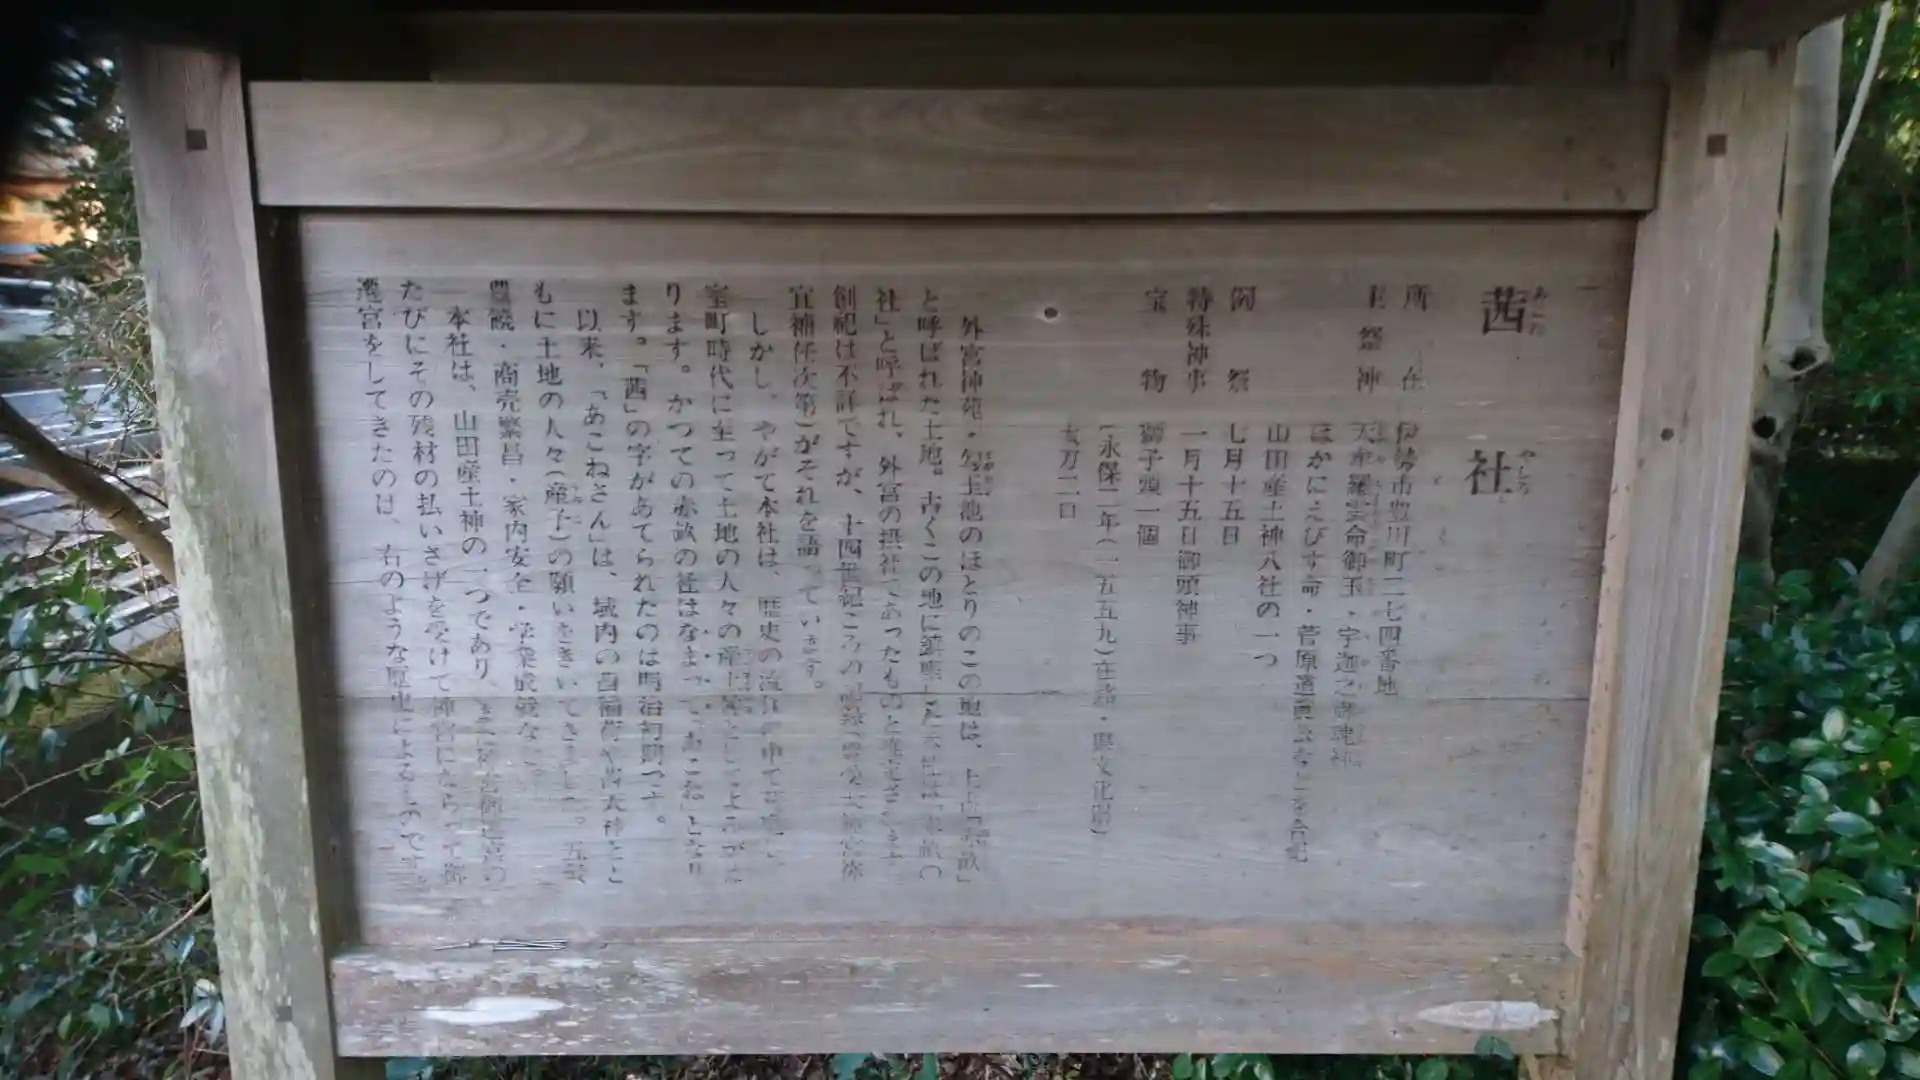 茜社
あこね やしろ
所在 伊勢市豊川町二七四番地
主祭神 天牟羅雲命御玉・宇迦之御魂神
ほかにえびす命・菅原道真公など
山田産土神八社の一つ
例祭 七月十五日
特殊神事 一月十五日御頭神事
宝物 獅子頭一個
(永保二年(一五五九)在銘・県文化財)
太刀二口
外宮神苑・勾玉池のほとりのこの地は、上古「赤畝」
と呼ばれた土地。古くこの地に鎮座した本社は「赤畝の
社」と呼ばれ、外宮の摂社であったものと
創祀は不詳ですが、十四世紀ころの記録(豊受大神宮祢
宜補任次第)がそれを語っています。
しかし、やがて本社は、歴史の流れの中で
室町時代に至って土地の人々の産土神としてよみがえ
ります。かつての赤畝の社はなまって「あこね」となり
ます。「茜」の字があてられたのは明治初期です。
以来、「あこねさん」は、域内の
もに土地の人々(産子)の願いをきいてきました。五穀
豊饒・商売繁昌・家内安全・学業成就など。
本社は、山田産土神の一つであり、
たびにその残材の払いさげを受けて神宮にならって御
遷宮をしてきたのは、右のような歴史によるものです。